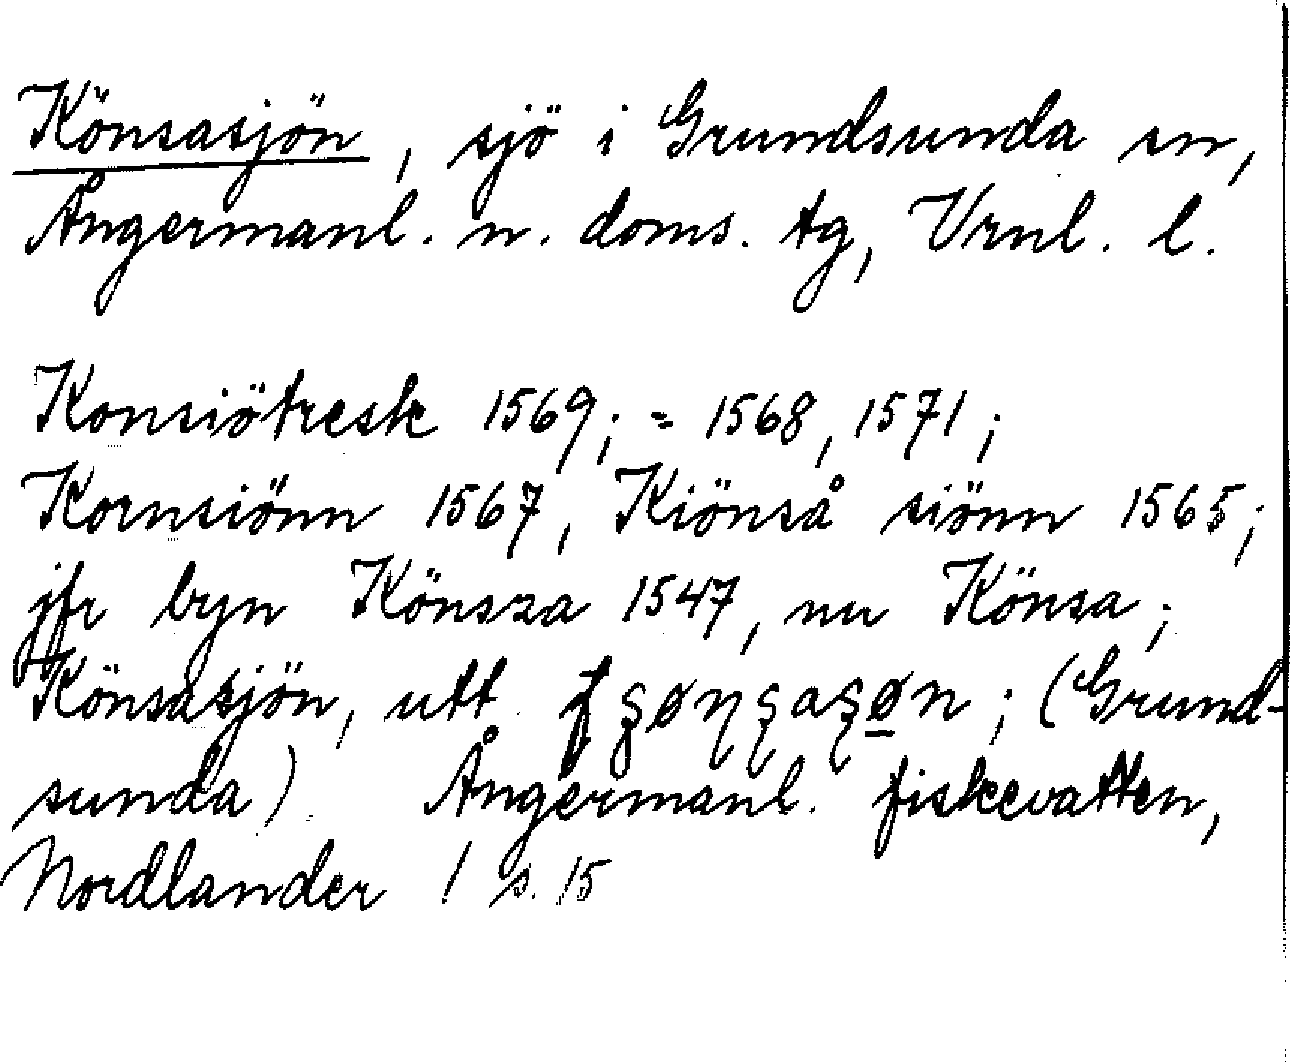 Könsasjön, sjö i Grundsunda sn,
Ångermanl. n. doms. tg, Vrnl. l.
Konsiötresk 1569; = 1568, 1571;
Kornsiönn 1567, Kiönså siönn 1565;
jfr byn Könsza 1547, nu Könsa;
Könsasjön, utt. ; (Grund-
sunda) Ångermanl. fiskevatten,
Nordlander 1 s. 15